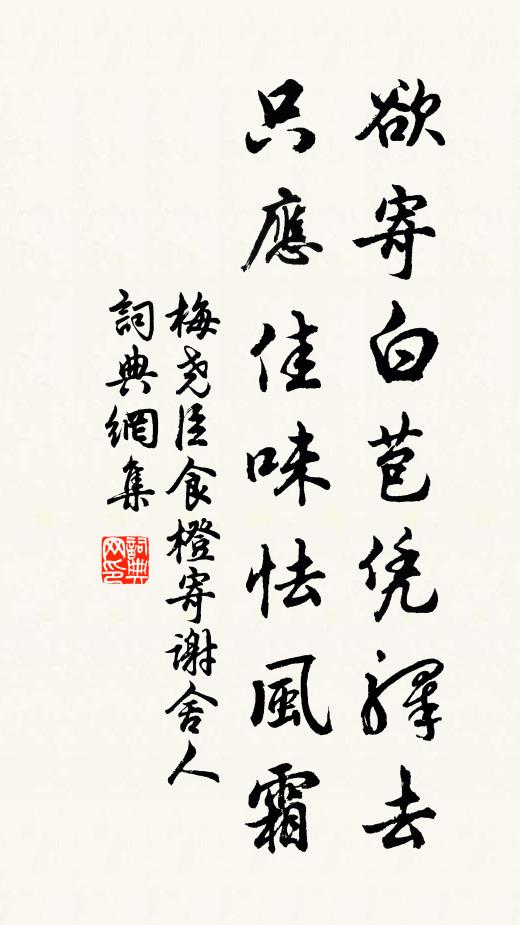 欲寄白苞凭驛去
只應佳味怯風霜
梅尧臣食橙寄谢舍人
詞典網集
詞典网印